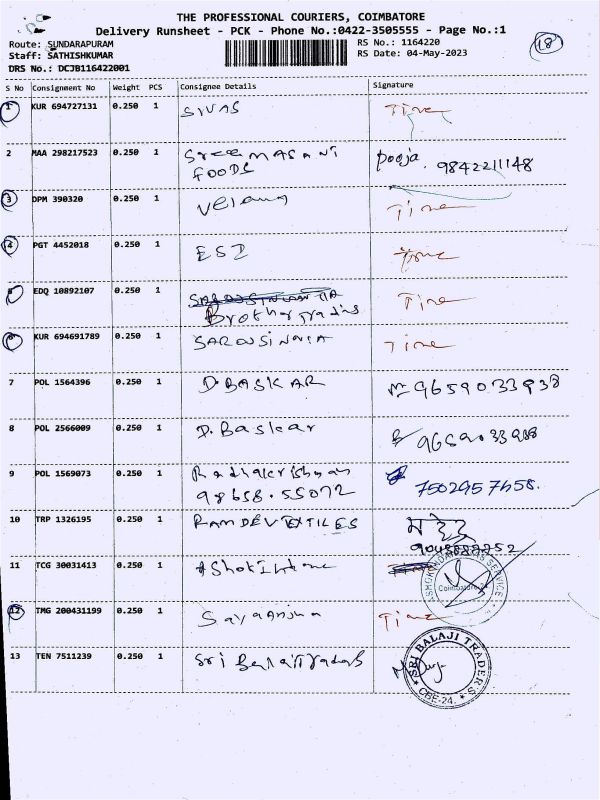 THE PROFESSIONAL COURIERS, COIMBATORE
Delivery Runsheet - PCK - Phone No.:0422-3505555 - Page No.:1
Route: SUNDARAPURAM RS No.: 1164220 18
Staff: SATHISHKUMAR RS Date: 04-May-2023
DRS No.: DCJB116422001
S No Consignment No Weight PCS Consignee Details Signature
1 KUR 694727131 0.250 1 SIVAS Time
2 MAA 298217523 0.250 1 Sree MASANI Pooja. 9842211148
FOODS
3 DPM 390320 0.250 1 Time
4 PGT 4452018 0.250 1 ESI Time
5 EDQ 10892107 0.250 1 Time
6 KUR 694691789 0.250 1 Time
7 POL 1564396 0.250 1 D. BASKAR 9659033938
8 POL 2566009 0.250 1 D. Baskar
9 POL 1569073 0.250 1 Radhakrishnan
98658.55072 7502957458.
10 TRP 1326195 0.250 1 RAMDEV TEXTILES
11 TCG 30031413 0.250 1 Time
SERVICE
12 TMG 200431199 0.250 1 Time
13 TEN 7511239 0.250 1 Sri Balaji Traders
SRI BALAJI TRADER'S
CBE-24.